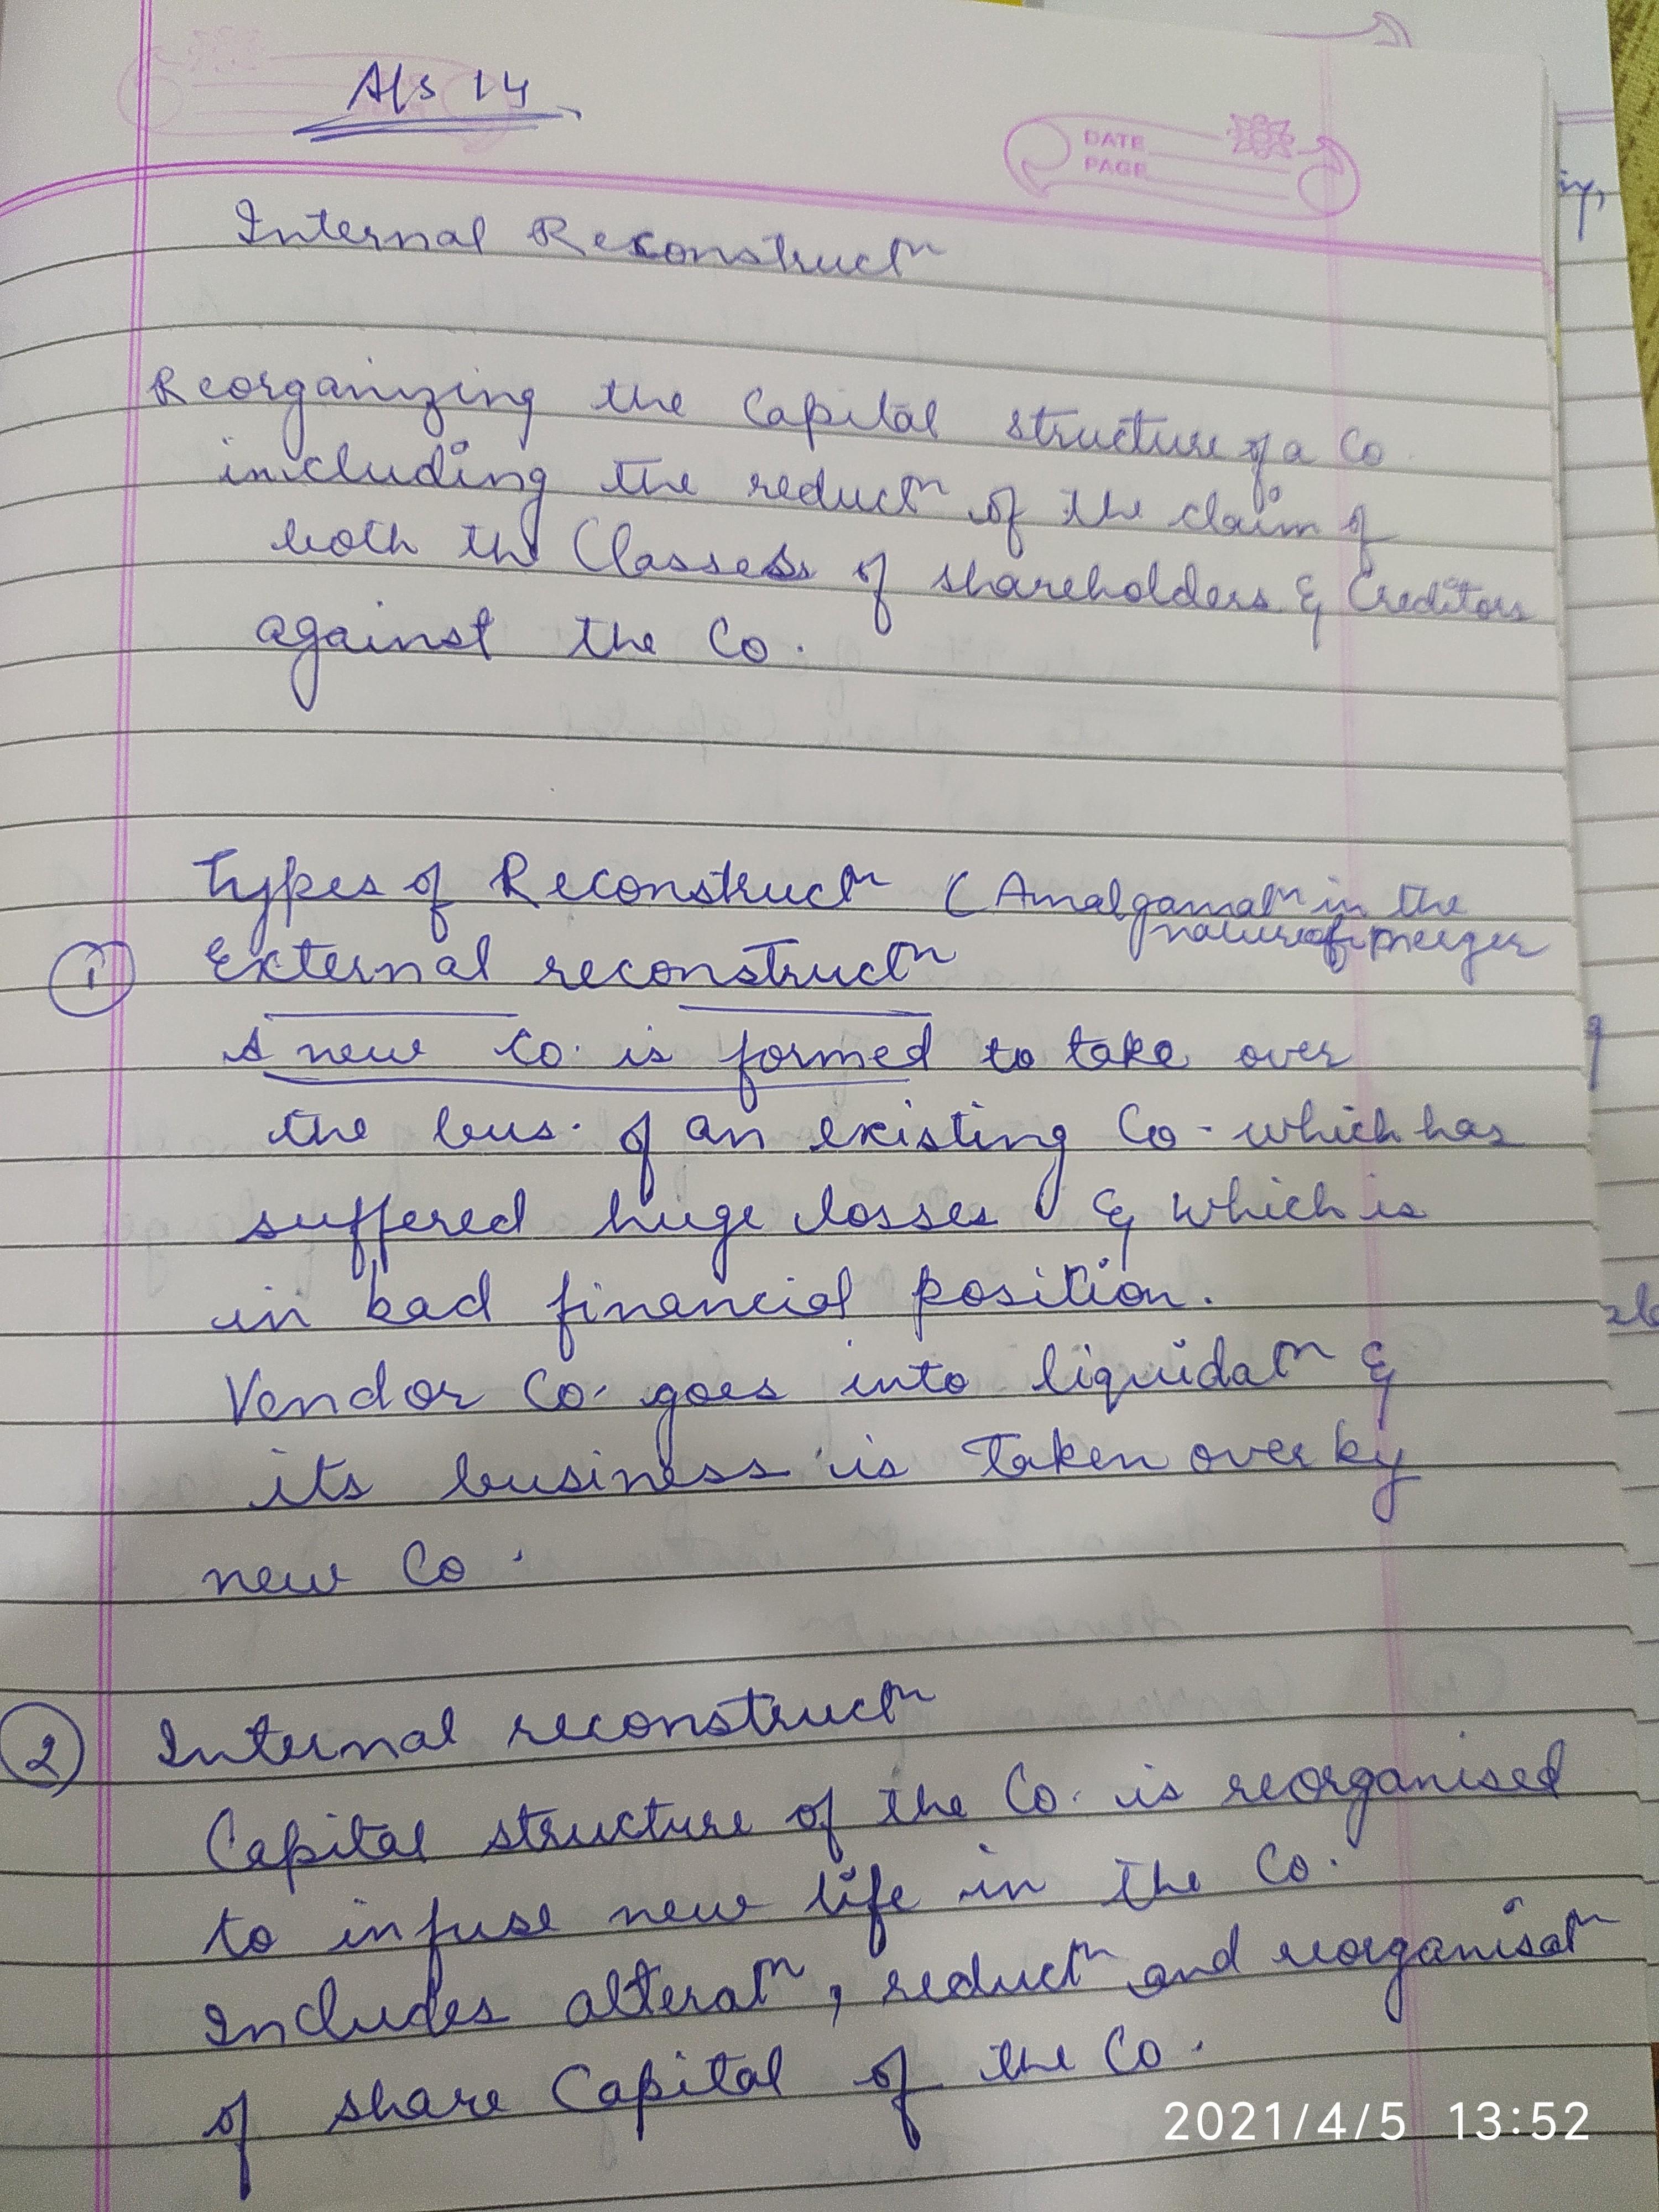 A/s 14
DATE
PAGE
Internal Reconstructn
Reorganizing the Capital structure of a Co
including the reductn of the claim of
both the Classes of shareholders & Creditors
against the Co.
Types of Reconstructn (Amalgamatn in the
nature of merger
① External reconstructn
A new Co. is formed to take over
the bus. of an existing Co. which has
suffered huge losses & which is
in bad financial position.
Vendor Co. goes into liquidatn &
its business is taken over by
new Co.
② Internal reconstructn
Capital structure of the Co. is reorganised
to infuse new life in the Co.
Includes alteratn, reductn and reorganisatn
of share Capital of the Co.
2021/4/5 13:52